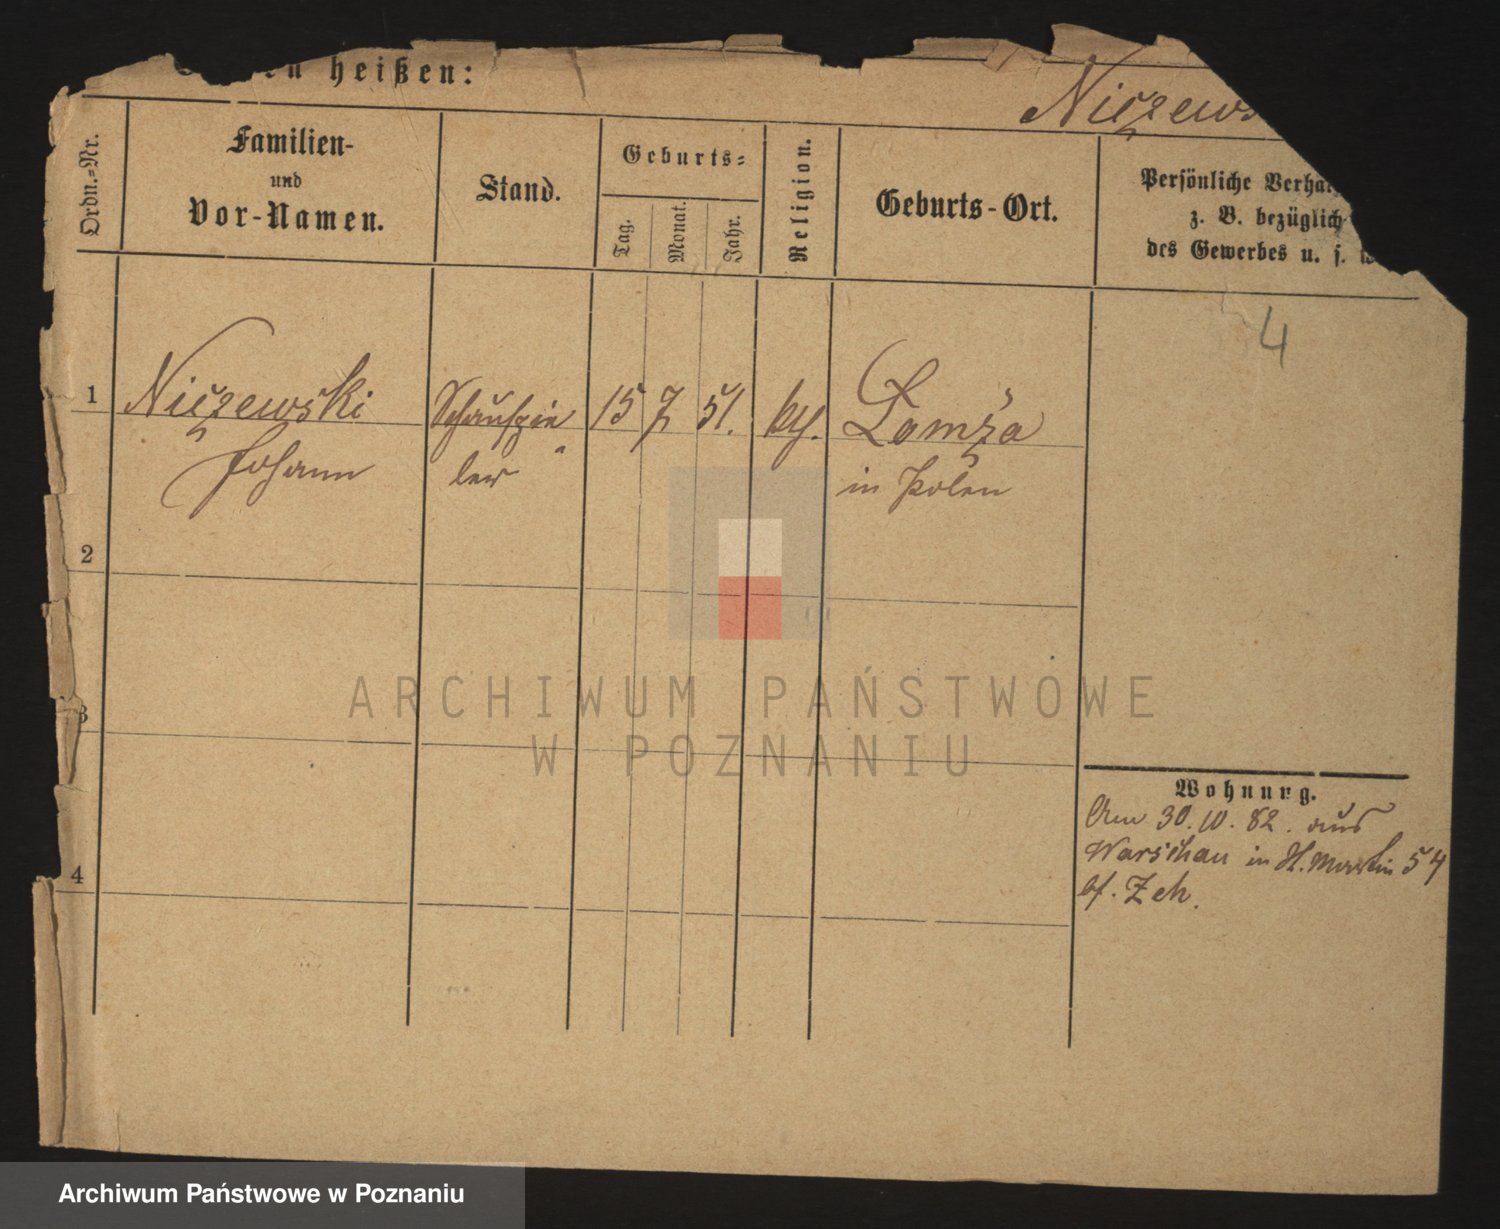 heißen:
Niczews
Ordn.-Nr.
Familien-
und
Vor-Namen.
Stand.
Geburts=
Tag.
Monat.
Jahr.
Religion.
Geburts-Ort.
Persönliche Verha
z. B. bezüglich
des Gewerbes u. s. w
4
1
Niczewski
Johann
Schauspie
ler
15
7
51.
Lomża
in Polen
2
3
4
Wohnung.
Am 30.10.82. aus
Warschau in St. Martin 54
bf. Zeh.
ARCHIWUM PAŃSTWOWE
W POZNANIU
Archiwum Państwowe w Poznaniu